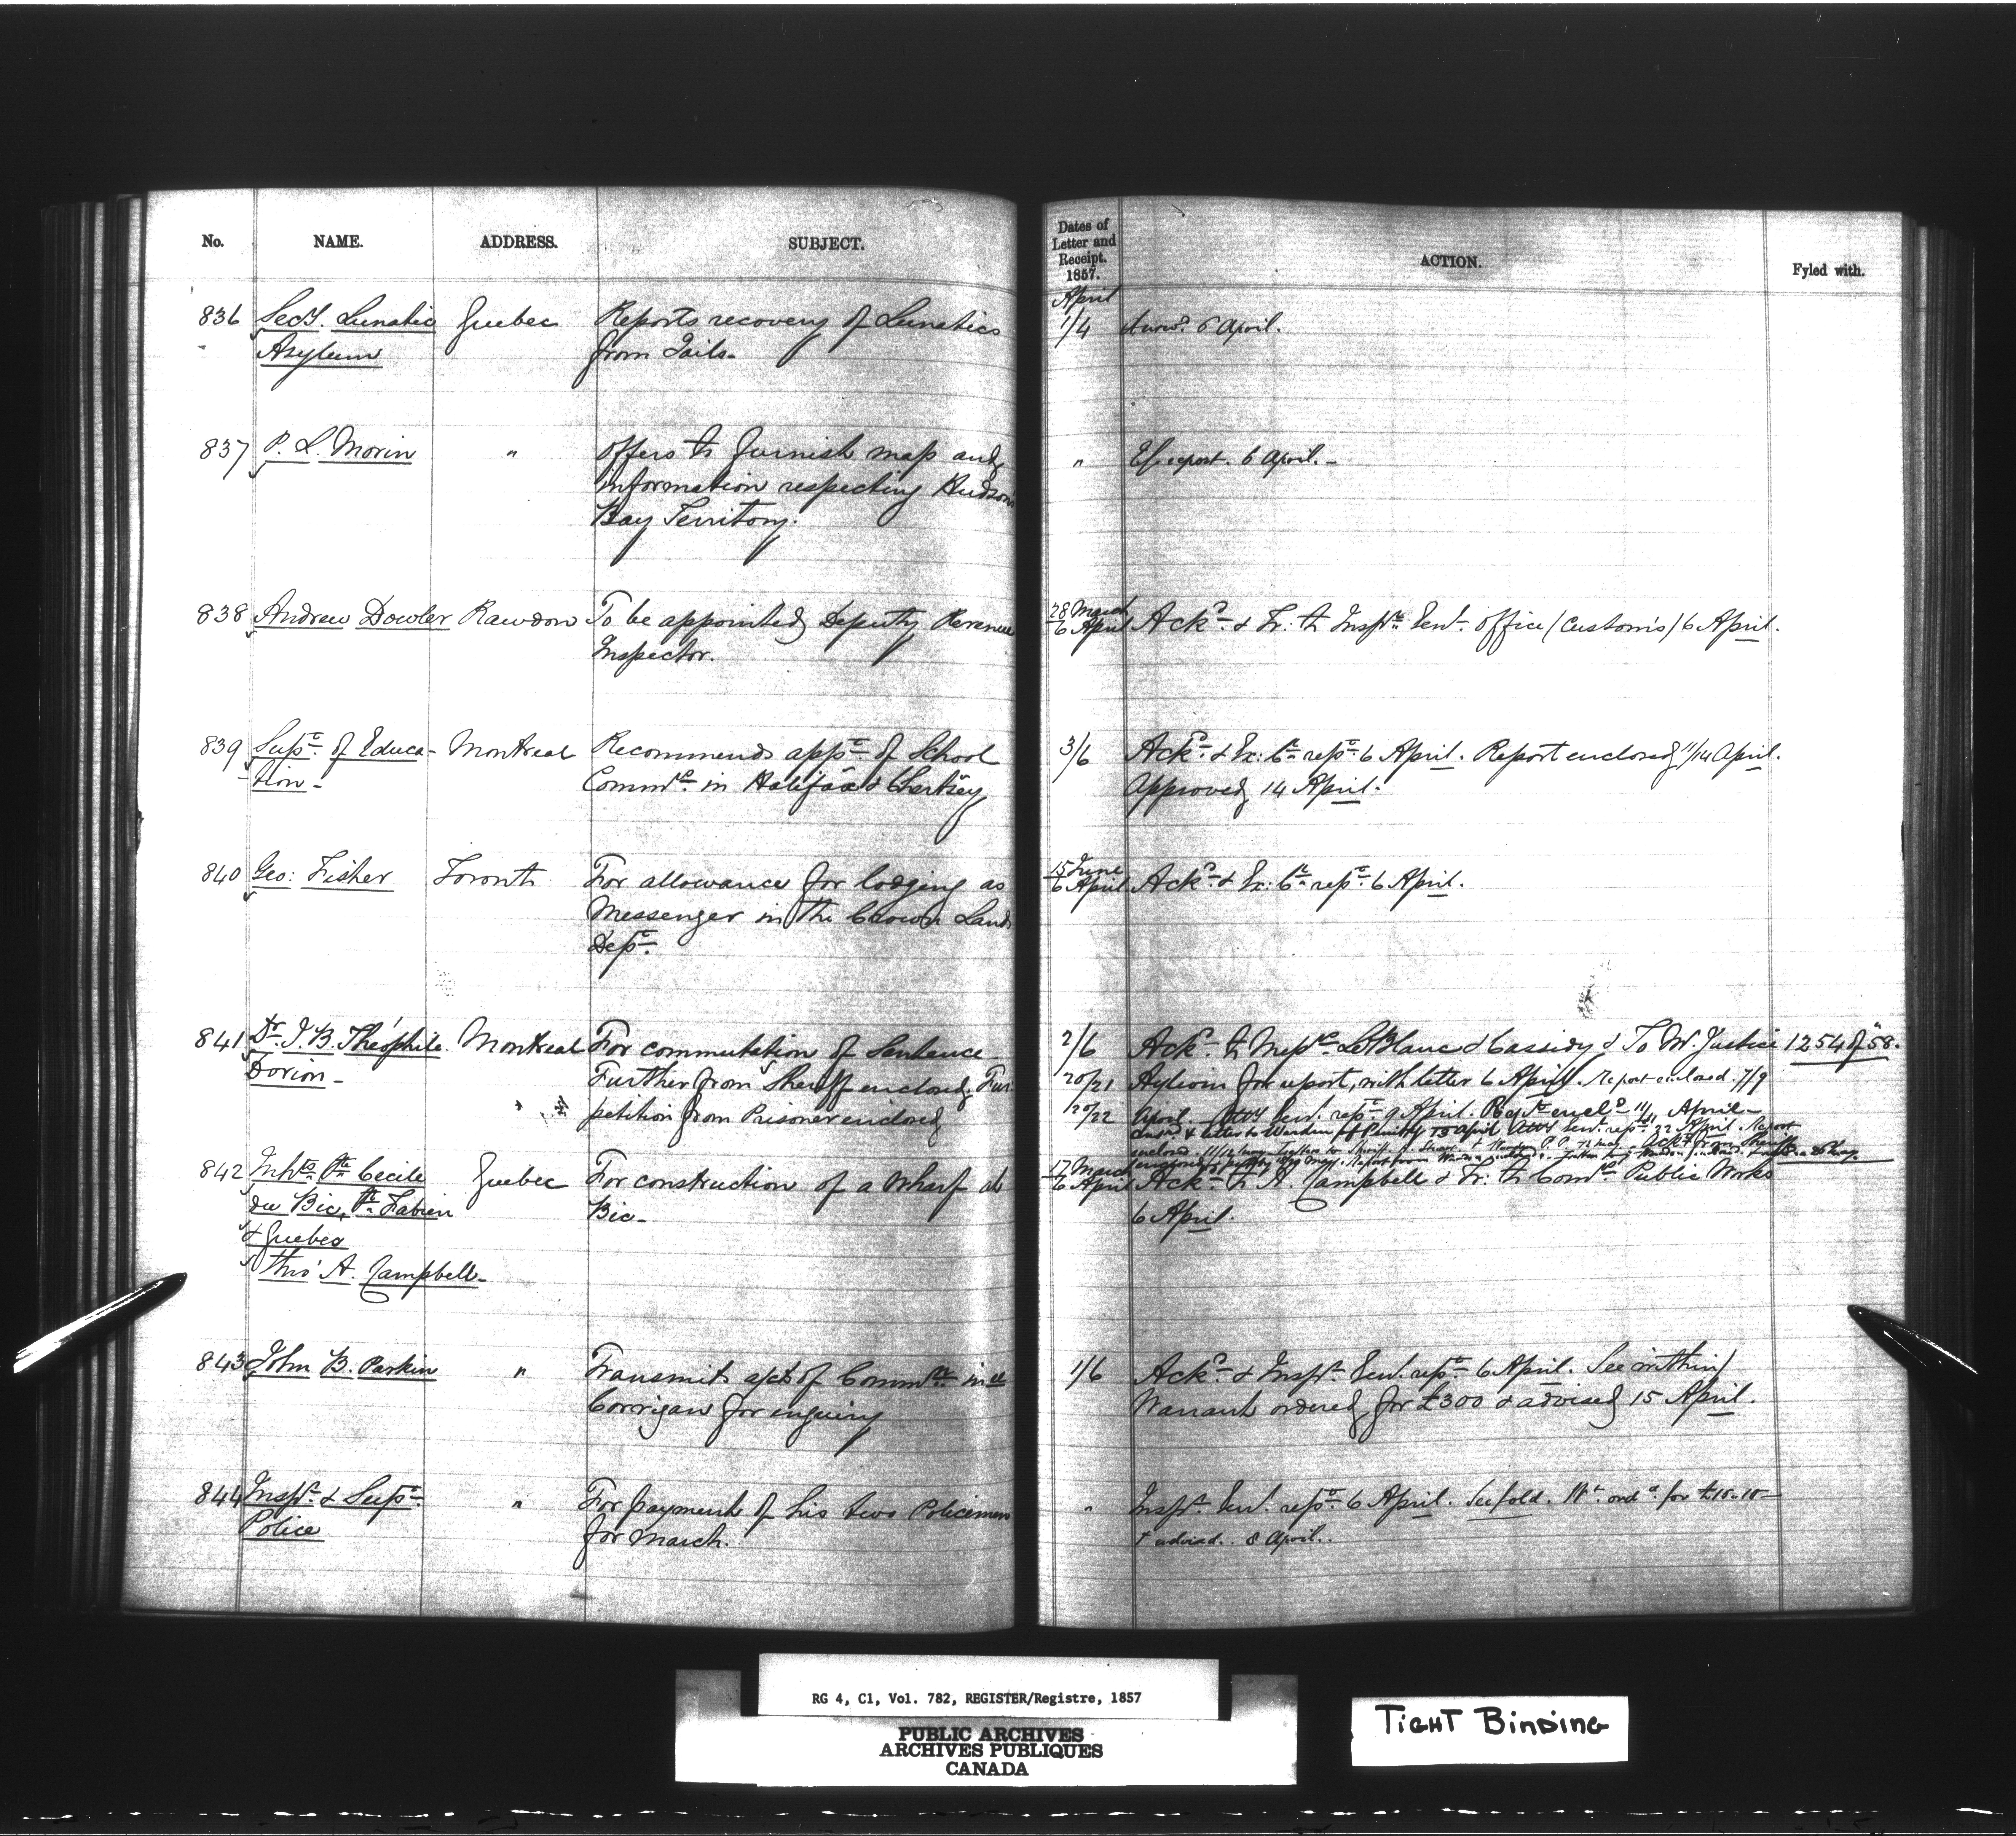 No. NAME. ADDRESS. SUBJECT.
Dates of Letter and Receipt. 1857. ACTION. Fyled with.
April
836 Secy. Lunatic Quebec Reports recovery of Lunatics 1/4 Answd. 6 April.
Asylum from Gails.
837 P. L. Morin " Offers to furnish map and " Ex. report. 6 April.
information respecting Hudson
Bay Territory.
838 Andrew Dowler Rawdon To be appointed Deputy Revenue 28 March
6 April Ackd. & Tr: to Inspr. Genl. Office (Customs) 6 April.
Inspector.
839 Supt. of Educa- Montreal Recommends appt. of School 3/6 Ackd. & Ex: Cl. rept. 6 April. Report enclosed 11/14 April.
tion - Commrs. in Halifax & Chertsey Approved 14 April.
840 Geo: Fisher Toronto For allowance for lodging as 15 June
6 April Ackd. & Ex: Cl. rept. 6 April.
Messenger in the Crown Lands
Dept.
841 Dr. J. B. Théophile Montreal For commutation of Sentence 2/6 Ackd. to Messrs. LeBlanc & Cassidy & To Mr. Justice 1254 of 58.
Dorion - Further from Sheriff enclosed Fur. 20/21 Aylwin for report, with letter 6 April. Report enclosed. 7/9
petition from Prisoner enclosed 20/22 April Atty Genl. rept. 9 April. encld 11/11 April
& letter to Warden 13 April Atty Genl. rept. 22 April. Report
enclosed 11/12 May
842 Inhts. Ste Cecile Quebec For construction of a Wharf at 17 March
6 April Ackd. to A. Campbell & Tr. to Comrs. Public Works
du Bic, St. Fabien Bic - 6 April.
& Quebec
thro' A. Campbell -
843 John B. Parkin " Transmits acct of Commn. in re 1/6 Ackd. & Inspr. Genl. rept. 6 April. See within/
Corrigan for enquiry Warrant ordered for £300 & advised 15 April.
844 Inspr. & Supt. " For payment of his two Policemen " Inspr. Genl. rept. 6 April. See fold. Wt. ordd. for £15.10
Police for March. & advised. 8 April.
RG 4, C1, Vol. 782, REGISTER/Registre, 1857
PUBLIC ARCHIVES
ARCHIVES PUBLIQUES
CANADA
TIGHT BINDING